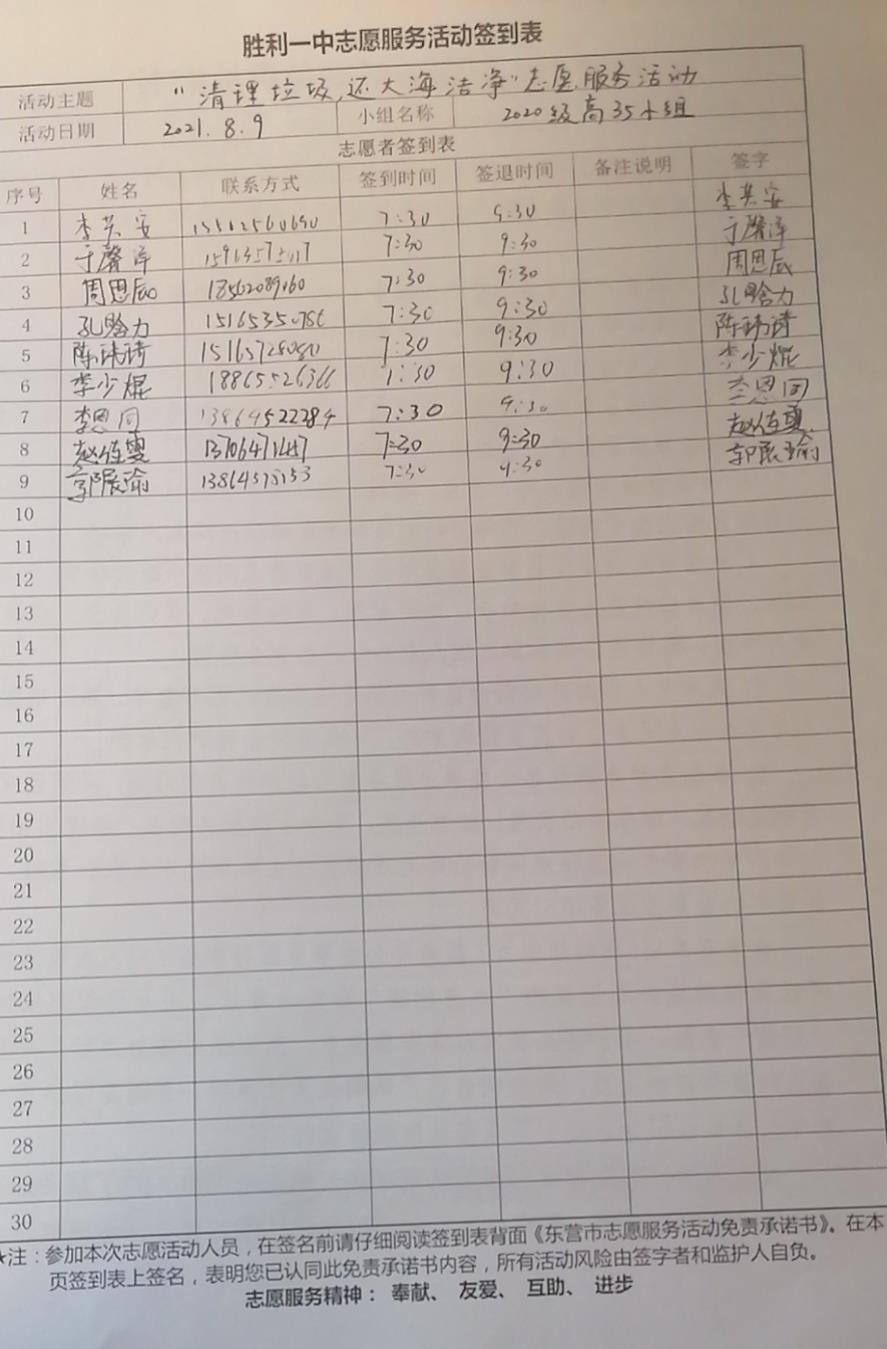 胜利一中志愿服务活动签到表
活动主题 "清理垃圾,还大海洁净"志愿服务活动
活动日期 2021.8.9 小组名称 2020级高35小组
志愿者签到表
序号 姓名 联系方式 签到时间 签退时间 备注说明 签字
1 李英安 7:30 9:30 李英安
2 于馨泽 7:30 9:30 于馨泽
3 周恩辰 18562089060 7:30 9:30 周恩辰
4 孔晗力 15165350786 7:30 9:30 孔晗力
5 15165728080 7:30 9:30
6 李少焜 18865526366 7:30 9:30 李少焜
7 李恩同 13864522284 7:30 9:30 李恩同
8 13706471447 7:30 9:30
9 郭展瑜 7:30 9:30 郭展瑜
10
11
12
13
14
15
16
17
18
19
20
21
22
23
24
25
26
27
28
29
30
★注:参加本次志愿活动人员,在签名前请仔细阅读签到表背面《东营市志愿服务活动免责承诺书》。在本
页签到表上签名,表明您已认同此免责承诺书内容,所有活动风险由签字者和监护人自负。
志愿服务精神: 奉献、 友爱、 互助、 进步